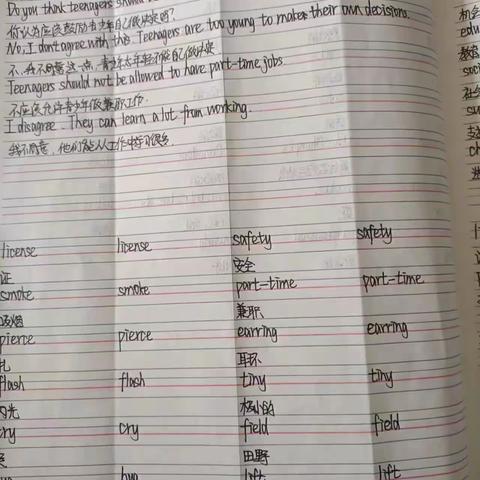 Do you think teenagers should
你认为应该鼓励青少年自己做决定吗?
No, I don't agree with this. Teenagers are too young to make their own decisions.
不,我不同意这一点,青少年太年轻不能自己做决定
Teenagers should not be allowed to have part-time jobs
不应该允许青少年做兼职工作.
I disagree. They can learn a lot from working.
我不同意,他们能从工作中学习很多.
license license safety safety
证 安全
smoke smoke part-time part-time
吸烟 兼职
pierce pierce earring earring
扎 耳环
flash flash tiny tiny
闪光 极小的
cry cry field field
哭 田野
lift lift
机会
edu
教育
soci
社会
su
支
ch